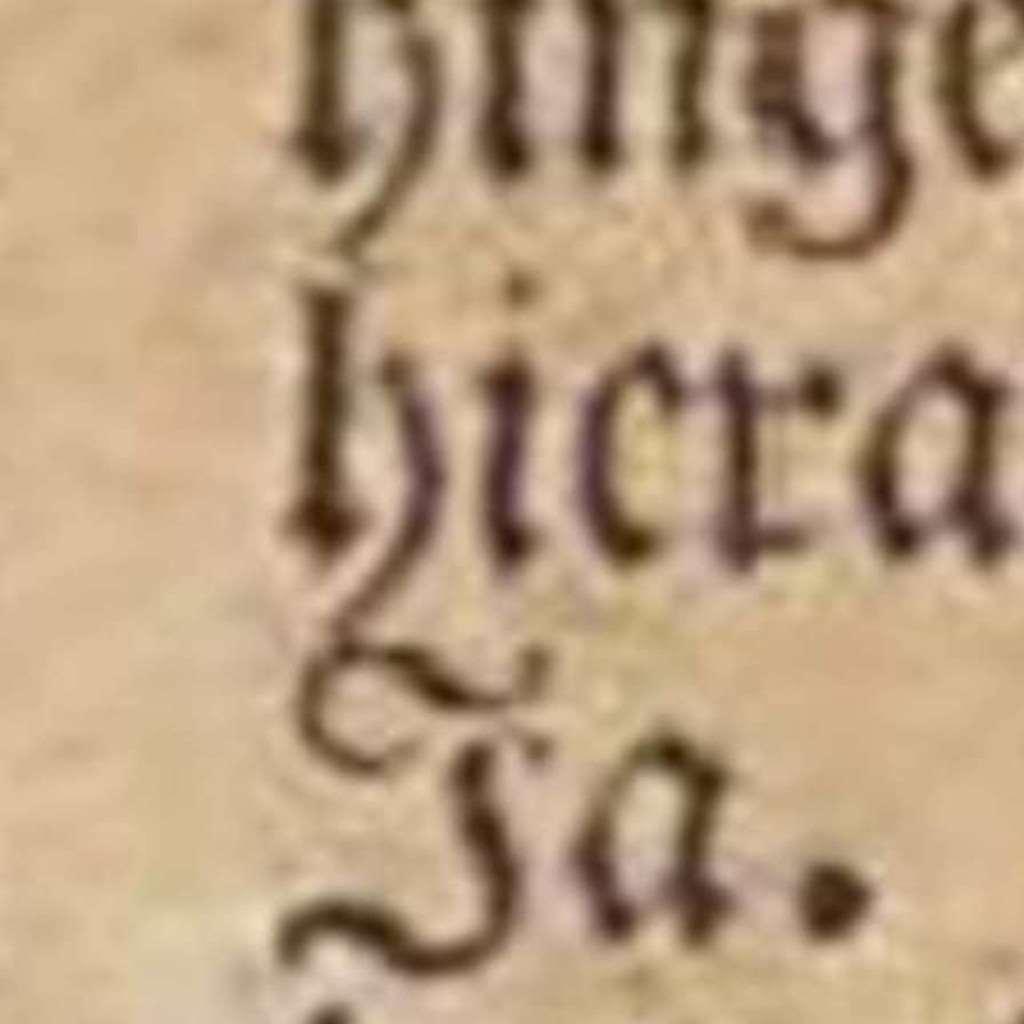 hinge
hiera
Ja.